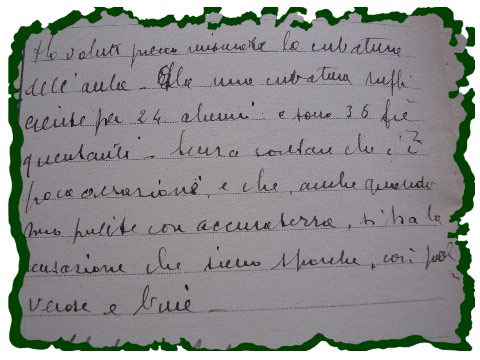 Ho voluto prova misurare la cubatura
dell'aula - Ha una cubatura suffi
ciente per 24 alunni e sono 36 fre
quentanti - Senza contare che c'è
poca areazione, e che, anche quando
sono pulite con accuratezza, si ha la
sensazione che sieno sporche, così pol
verose e buie -